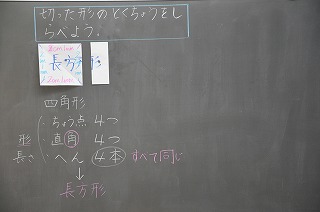 切った形のとくちょうをし
らべよう.
長方形
四角形
・ちょう点 4つ
形 ・直角 4つ
長さ ・へん 4本 すべて同じ
↓
長方形